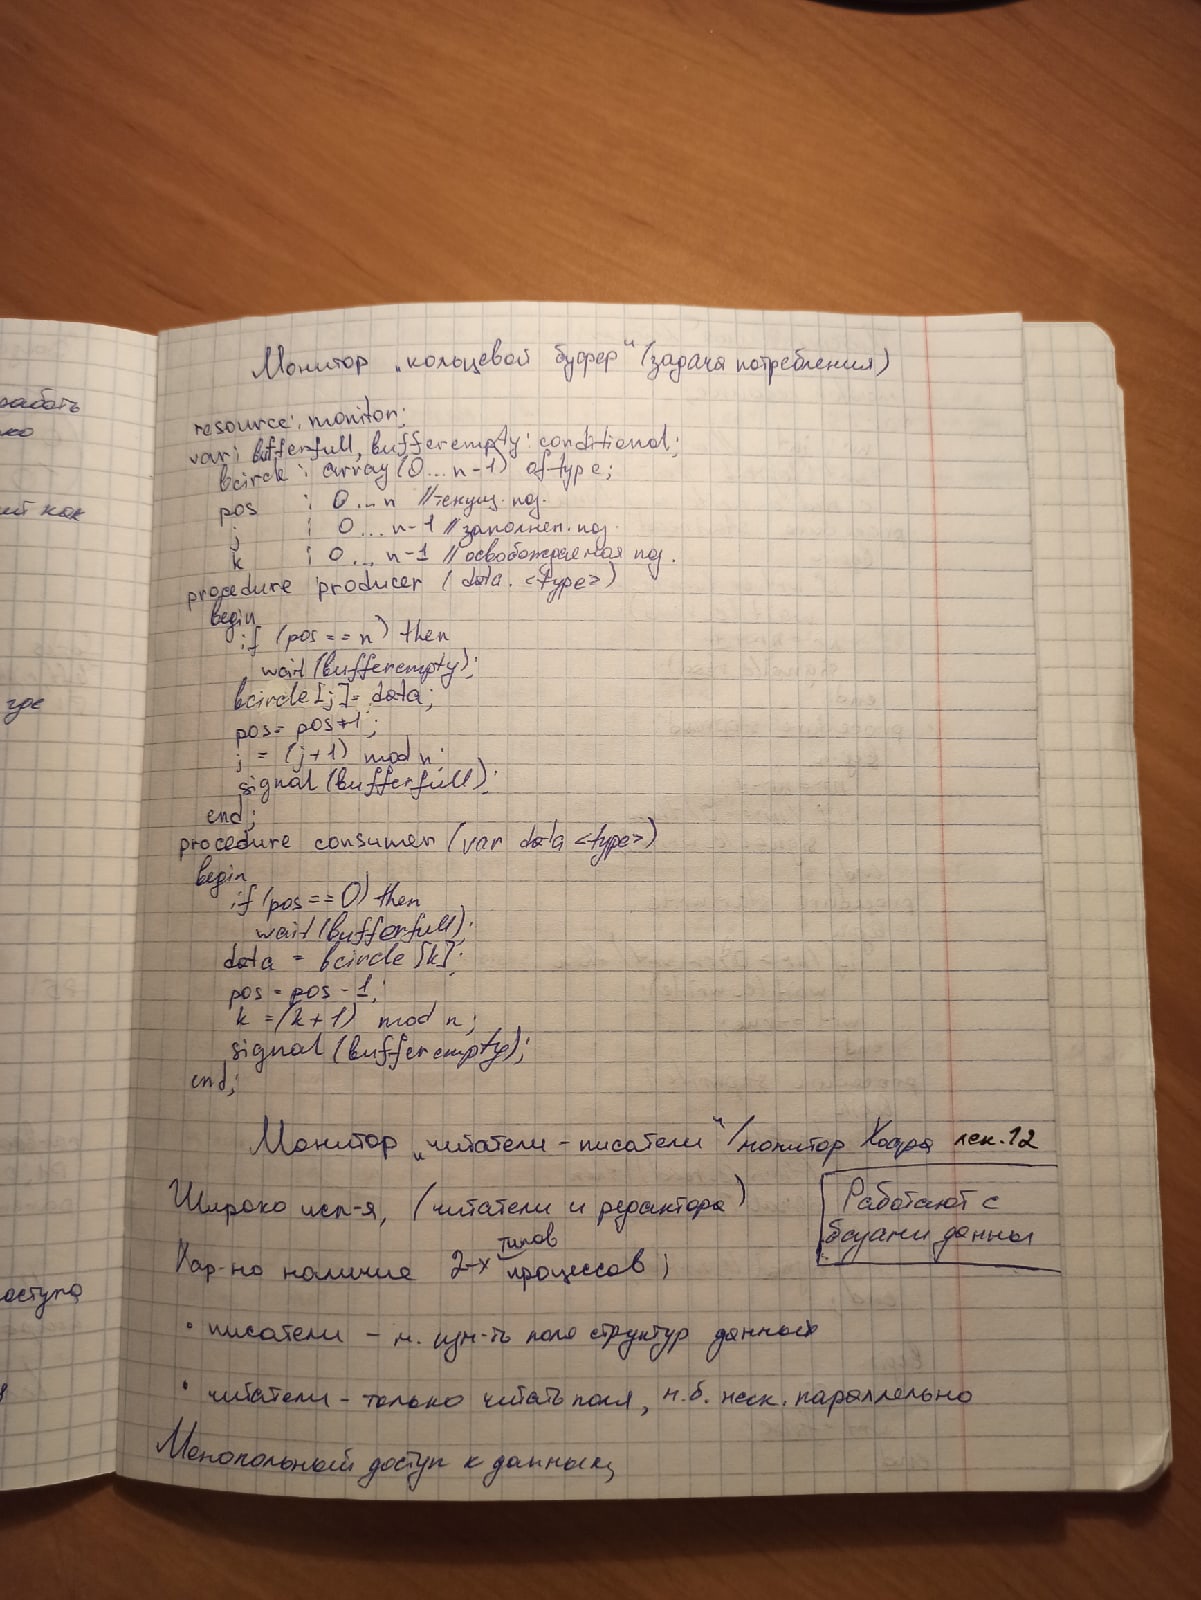 работь
ий как
где
оступа
Монитор „кольцевой буфер" (задача потребления)
resource: monitor;
var: bufferfull, bufferempty: conditional;
bcircle : array (0...n-1) of type;
pos : 0...n //текущ. поз.
j : 0...n-1 //заполнен. поз.
k : 0...n-1 //освобождаемая поз.
procedure producer (data <type>)
begin
if (pos == n) then
wait (bufferempty);
bcircle [j] = data;
pos = pos+1;
j = (j+1) mod n;
signal (bufferfull);
end;
procedure consumer (var data <type>)
begin
if (pos == 0) then
wait (bufferfull);
data = bcircle [k];
pos = pos - 1;
k = (k+1) mod n;
signal (bufferempty);
end;
Монитор „читатели-писатели" / монитор Хоара лек. 12
Широко исп-я, (читатели и редактора)
Работают с
базами данны
Хар-но наличие 2-х типов процессов;
• писатели - м. изм-ть поля структур данных
• читатели - только читать поля, м.б. неск. параллельно
Менопольный доступ к данным,